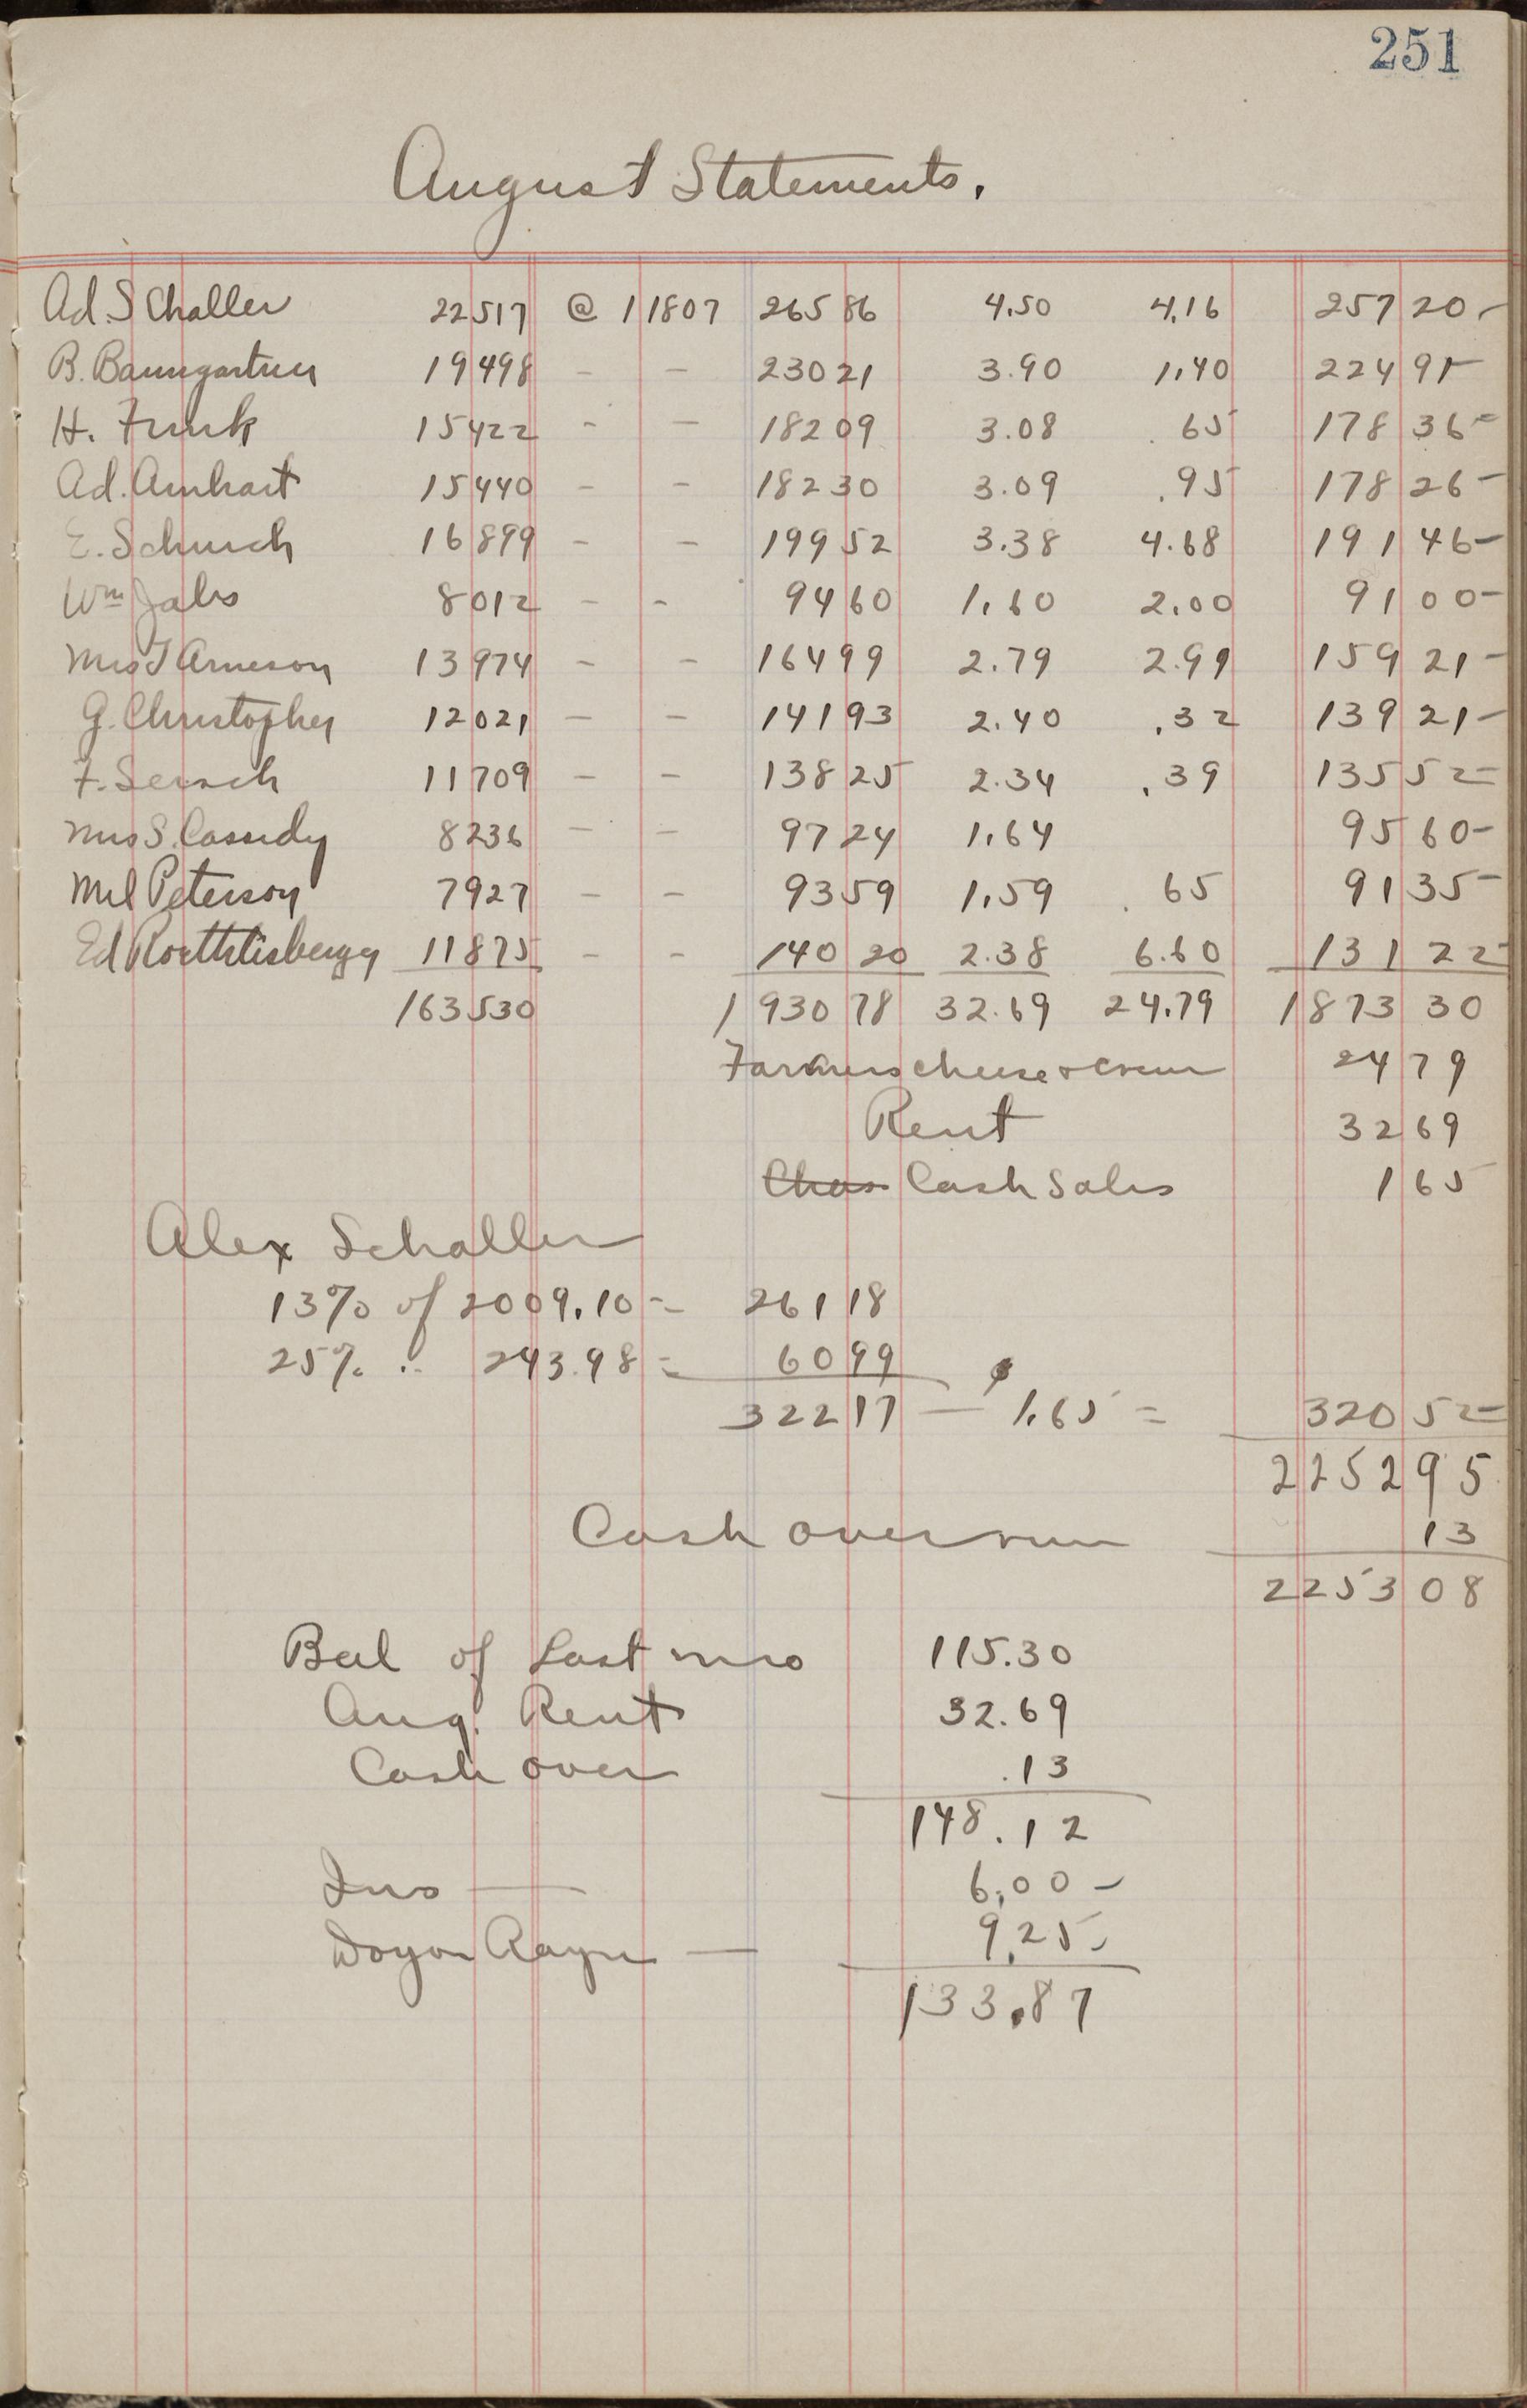 251
August Statements.
Ad. Schaller 22517 @ 1 1807 265 86 4.50 4.16 257 20 -
B. Baumgartner 19498 - - 230 21 3.90 1.40 224 91 -
H. Funk 15422 - - 182 09 3.08 .65 178 36 -
Ad. Arnhart 15440 - - 182 30 3.09 .95 178 26 -
E. Schurch 16899 - - 199 52 3.38 4.68 191 46 -
Wm Jabs 8012 - - 94 60 1.60 2.00 91 00 -
Mrs T Arneson 13974 - - 164 99 2.79 2.99 159 21 -
G. Christopher 12021 - - 141 93 2.40 .32 139 21 -
F. Sersch 11709 - - 138 25 2.34 .39 135 52 -
Mrs S. Cassidy 8236 - - 97 24 1.64 95 60 -
Mel Peterson 7927 - - 93 59 1.59 .65 91 35 -
Ed Roethlisberger 11875 - - 140 20 2.38 6.60 131 22 -
163530 1930 78 32.69 24.79 1873 30
Farmers cheese & cream 24 79
Rent 32 69
Chas Cash Sales 1 65
Alex Schaller
13% of 2009.10 = 261 18
25% " 243.98 = 60 99
322 17 — 1.65 = 320 52 -
2252 95
Cash overrun 13
2253 08
Bal of Last mo 115.30
Aug. Rent 32.69
Cash over .13
148.12
Ins — 6.00 -
9.25 -
133.87